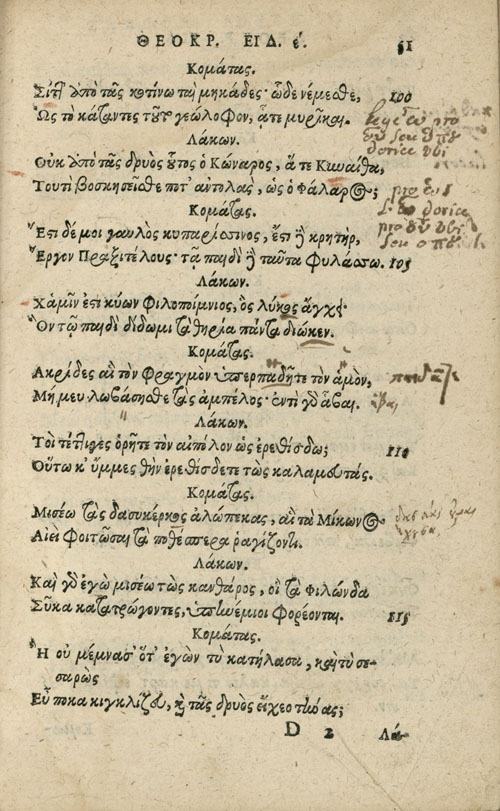 ΘΕΟΚΡ. ΕΙΔ. έ. 51
Κομάτας.
Σίτῖ ἀπὸ τᾶς κοτίνω ταὶ μηκάδες· ὧδε νέμεσθε, 100
Ὡς τὸ κάταντες τοῦτο γεώλοφον, ᾇτε μυρῖκαι.
Λάκων.
Οὐκ ἀπὸ τᾶς δρυὸς οὗτος ὁ Κώναρος, ἅ τε Κιναίθα,
Τουτὶ βοσκησεῖσθε ποτ' ἀντολὰς, ὡς ὁ Φάλαρος;
Κομάτας.
Ἔστι δέ μοι γαυλὸς κυπαρίσσινος, ἔστι ἢ κρητὴρ,
Ἔργον Πραξιτέλους· τᾷ παιδὶ ἢ ταῦτα φυλάσσω. 105
Λάκων.
Χἁμῖν ἐστὶ κύων φιλοποίμνιος, ὃς λύκους ἄγχει·
Ὃν τῷ παιδὶ δίδωμι τὰ θηρία πάντα διώκεν.
Κομάτας.
Ἀκρίδες αἳ τὸν φραγμὸν ὑπερπαδῆτε τὸν ἁμὸν,
Μή μευ λωβάσησθε τὰς ἀμπέλος· ἐντὶ γὸ ἇβαι.
Λάκων.
Τοὶ τέττιγες ὁρῆτε τὸν αἰπόλον ὡς ἐρεθίσδω; 110
Οὕτω κ' ὔμμες θὴν ἐρεθίσδετε τὼς καλαμευτάς.
Κομάτας.
Μισέω τὰς δασυκέρκους ἀλώπεκας, αἳ τὰ Μίκωνος
Αἰεὶ φοιτῶσαι τὰ ποθέσπερα ῥαγίζοντι.
Λάκων.
Καὶ γὸ ἐγὼ μισέω τὼς κανθάρος, οἳ τὰ Φιλώνδα
Σῦκα κατατρώγοντες, ὑπηνέμιοι φορέονται. 115
Κομάτας.
Ἦ οὐ μέμνασ' ὅτ' ἐγὼν τὺ κατήλασα, καὶ τὺ σε-
σαρὼς
Εὖ ποκα κιγκλίζευ, καὶ τᾶς δρυὸς εἴχεο τήνας;
D 2 Λά-